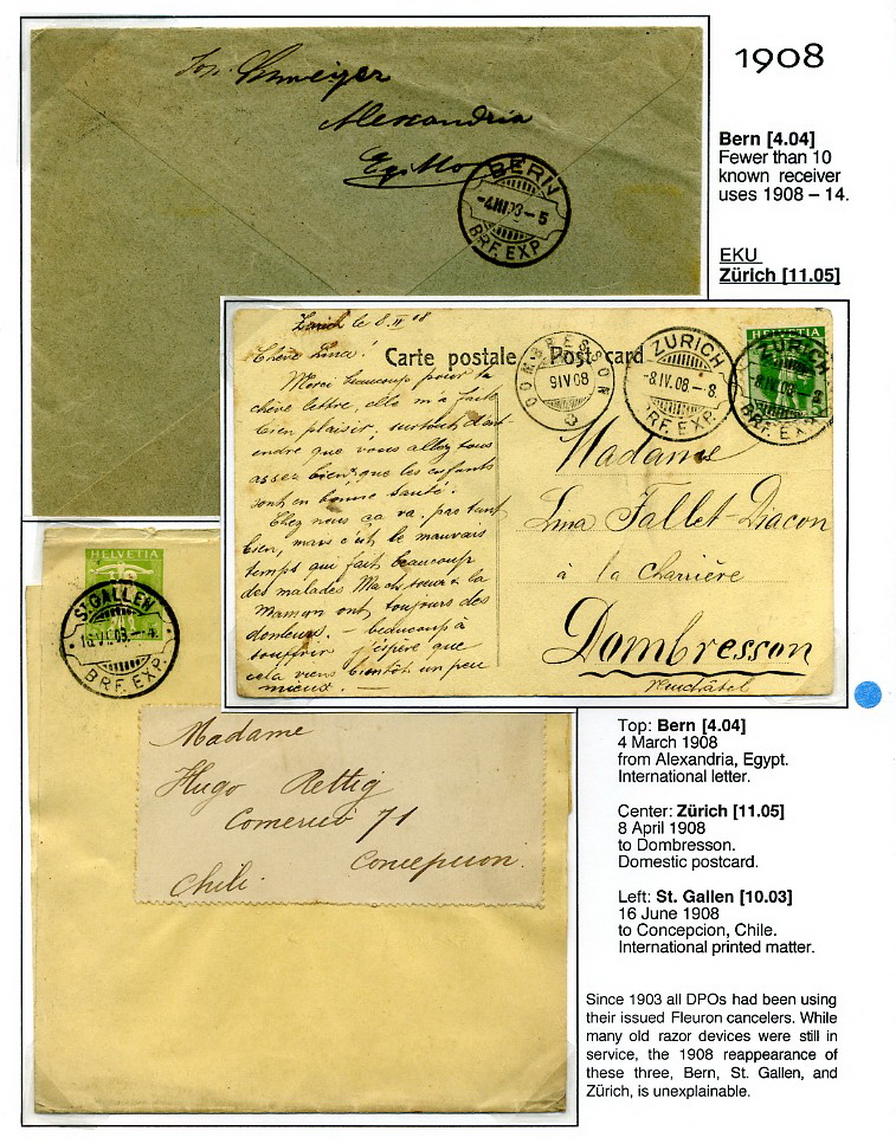 1908
Bern [4.04]
Fewer than 10
known receiver
uses 1908 – 14.
EKU
Zürich [11.05]
Alexandria
Egitto
BERN
-4III08-5
BRF. EXP.
Zurich le 8. IV 08
Chère Lina!
Carte postale Post card
Merci beaucoup pour ta
chère lettre, elle m'a faite
bien plaisir, surtout d'ent-
endre que vous allez tous
assez bien que les enfants
sont en bonne santé.
Chez nous ça va pas tant
bien, mais c'est le mauvais
temps qui fait beaucoup
des malades Ma chère & la
Maman ont toujours des
douleurs. – beaucoup à
souffrir j'espère que
cela viens bientôt un peu
mieux. —
DOMBRESSON
9IV08
ZÜRICH
-8.IV.08.-8.
BRF. EXP.
HELVETIA
ZÜRICH
-8.IV.08.-8
BRF. EXP.
Madame
Lina Fallet-Diacon
à la Charrière
Dombresson
Neuchâtel
HELVETIA
ST. GALLEN
16.VI.08.-4.
BRF. EXP.
Madame
Hugo Rettig
Comercio 71
Concepcion.
Chili.
Top: Bern [4.04]
4 March 1908
from Alexandria, Egypt.
International letter.
Center: Zürich [11.05]
8 April 1908
to Dombresson.
Domestic postcard.
Left: St. Gallen [10.03]
16 June 1908
to Concepcion, Chile.
International printed matter.
Since 1903 all DPOs had been using
their issued Fleuron cancelers. While
many old razor devices were still in
service, the 1908 reappearance of
these three, Bern, St. Gallen, and
Zürich, is unexplainable.